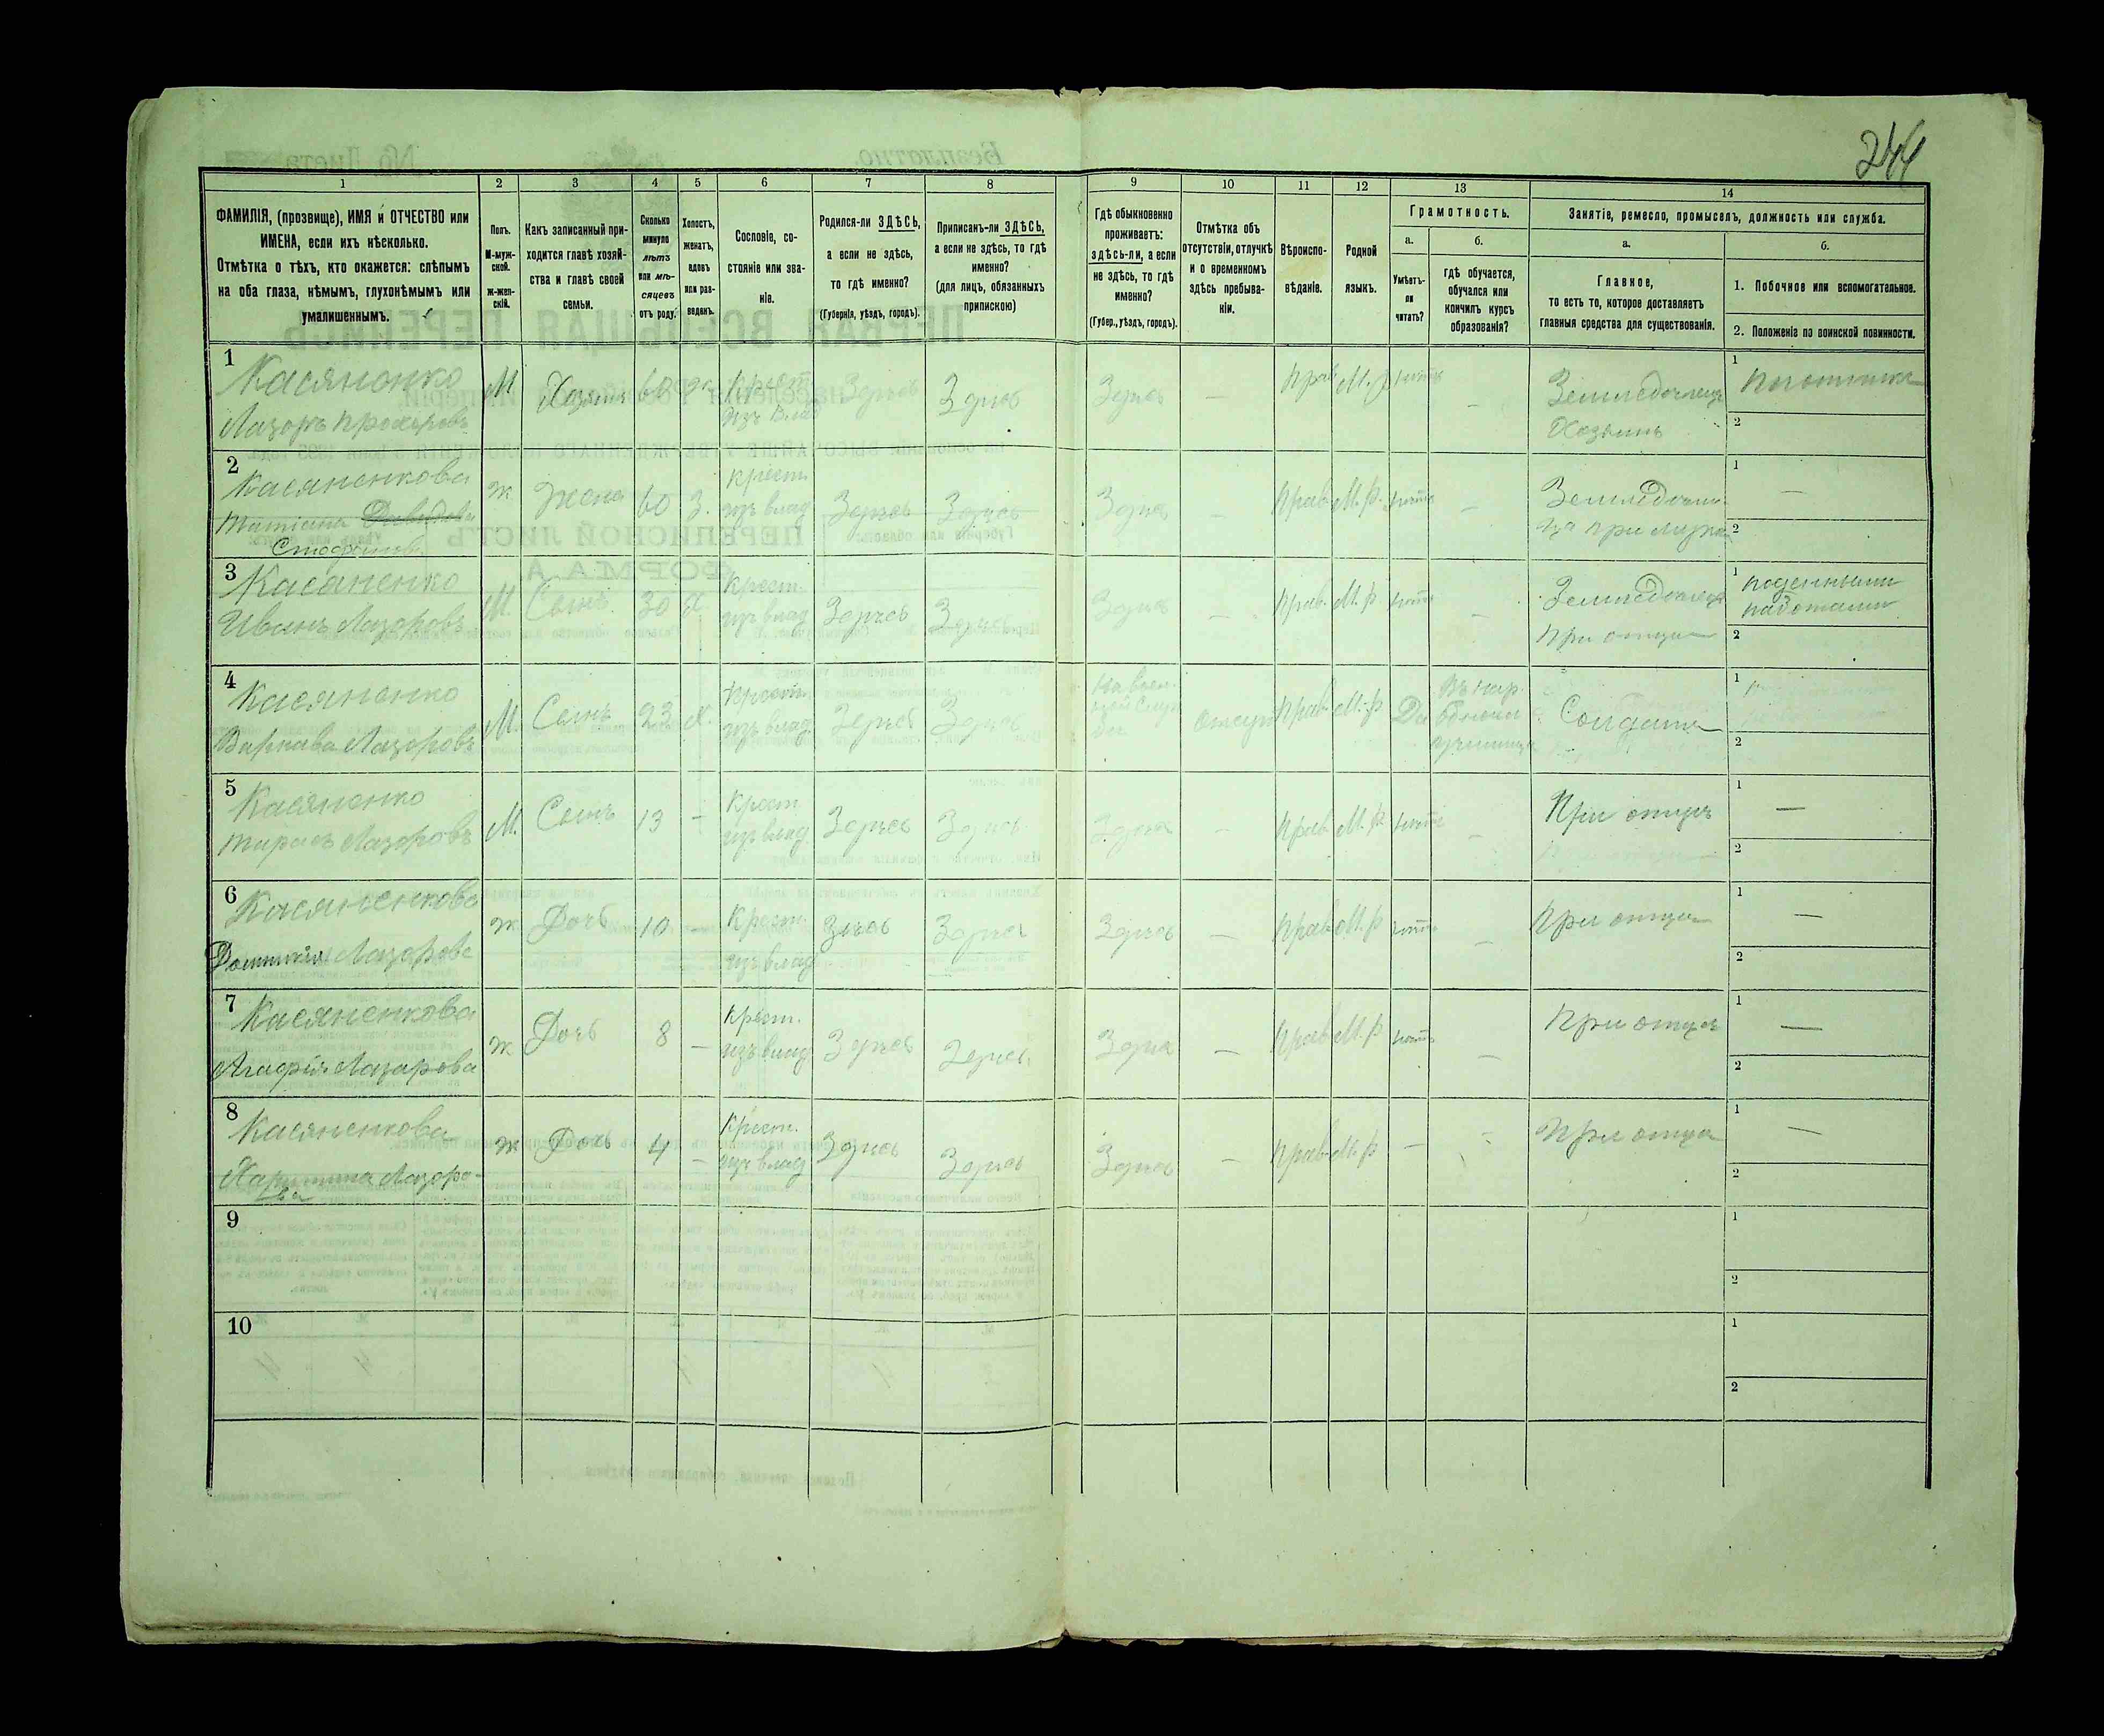 244
1 2 3 4 5 6 7 8 9 10 11 12 13 14
ФАМИЛІЯ, (прозвище), ИМЯ и ОТЧЕСТВО или
ИМЕНА, если ихъ нѣсколько.
Отмѣтка о тѣхъ, кто окажется: слѣпымъ
на оба глаза, нѣмымъ, глухонѣмымъ или
умалишеннымъ.
Полъ.
М-муж-
ской.
ж-жен-
скій.
Какъ записанный при-
ходится главѣ хозяй-
ства и главѣ своей
семьи.
Сколько
минуло
лѣтъ
или мѣ-
сяцевъ
отъ роду.
Холостъ,
женатъ,
вдовъ
или раз-
веденъ.
Сословіе, со-
стояніе или зва-
ніе.
Родился-ли ЗДѢСЬ,
а если не здѣсь,
то гдѣ именно?
(Губернія, уѣздъ, городъ).
Приписанъ-ли ЗДѢСЬ,
а если не здѣсь, то гдѣ
именно?
(для лицъ, обязанныхъ
припискою)
Гдѣ обыкновенно
проживаетъ:
здѣсь-ли, а если
не здѣсь, то гдѣ
именно?
(Губер., уѣздъ, городъ).
Отмѣтка объ
отсутствіи, отлучкѣ
и о временномъ
здѣсь пребыва-
ніи.
Вѣроиспо-
вѣданіе.
Родной
языкъ.
Грамотность.
а.
Умѣетъ-
ли
читать?
б.
гдѣ обучается,
обучался или
кончилъ курсъ
образованія?
Занятіе, ремесло, промыселъ, должность или служба.
а.
Главное,
то есть то, которое доставляетъ
главныя средства для существованія.
б.
1. Побочное или вспомогательное.
2. Положеніе по воинской повинности.
1 Касяненко
Лазоръ Прохоровъ
М Хозяинъ 60 ж. Крест. изъ влад. Здѣсь Здѣсь Здѣсь — Прав. М. р. нѣтъ —
Земледѣлецъ
Хозяинъ
1
2
2 Касяненкова
Татіана Давидова
Ж Жена 60 З. Крест. изъ влад. Здѣсь Здѣсь Здѣсь — Прав. М. р. нѣтъ —
1 —
2
3 Касяненко
Иванъ Лазоровъ
М. Сынъ. 30 Х Крест. изъ влад. Здѣсь Здѣсь Здѣсь — Прав. М. р. нѣтъ —
Земледѣлецъ
при отцѣ
1
2
4 Касяненко
Варнава Лазоровъ
М. Сынъ 23 Х. Крест. изъ влад. Здѣсь Здѣсь
На воен-
ной служ
бѣ
отсут. Прав. М. р. Да
Въ нар.
училищѣ
Солдатъ
1
2
5 Касяненко
Тарасъ Лазоровъ
М. Сынъ 13 — Крест. изъ влад. Здѣсь Здѣсь Здѣсь — Прав. М. р. нѣтъ —
При отцѣ
1 —
2
6 Касяненкова
Лазорова
Ж Дочь 10 — Крест. изъ влад. Здѣсь Здѣсь Здѣсь — Прав. М. р. нѣтъ —
При отцѣ
1 —
2
7 Касяненкова
Агафія Лазорова
Ж Дочь 8 — Крест. изъ влад. Здѣсь Здѣсь Здѣсь — Прав. М. р. нѣтъ —
При отцѣ
1 —
2
8 Касяненкова
Харитина Лазоро-
ва
Ж Дочь 4 — Крест. изъ влад. Здѣсь Здѣсь Здѣсь — Прав. М. р. — —
При отцѣ
1 —
2
9
1
2
10
1
2